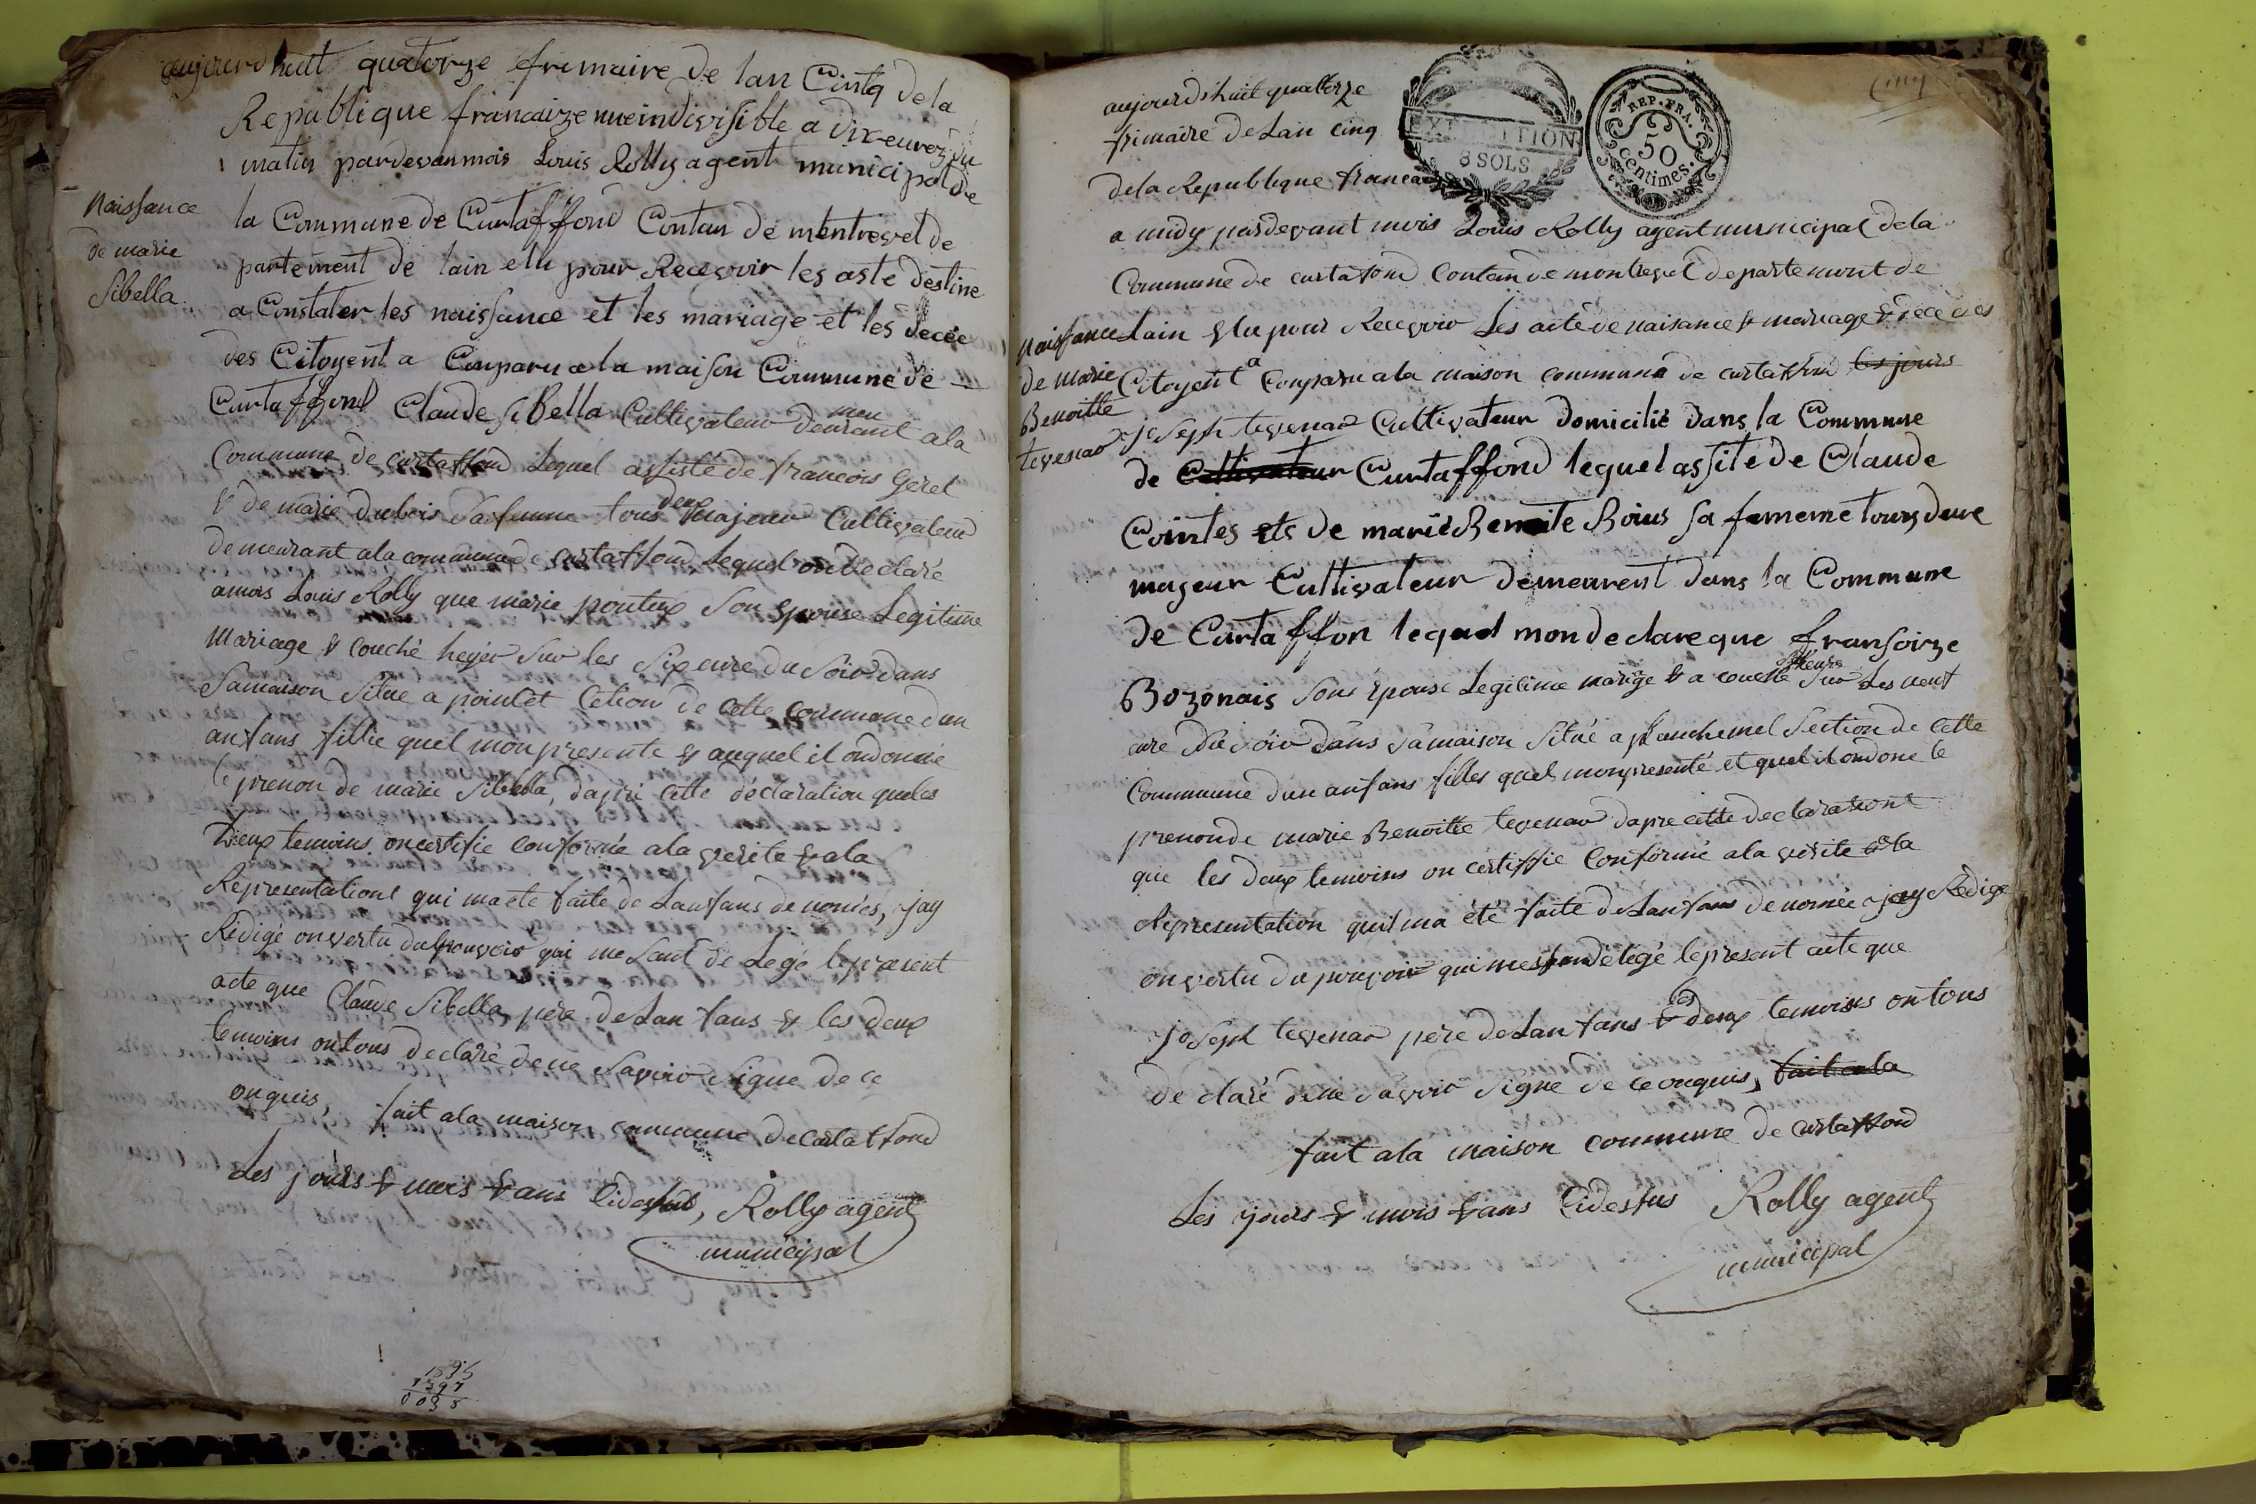 aujourdhuit quatorze frimaire de lan Cintq dela
Republique francaize nue indivisible a dix eurez du
matin pardevan mois Louis Rolly agent municipal de
Naissance
de marie
Sibella
la Commune de Curtaffond Contan de mentrevel de
partement de lain elu pour Recevoir les aste destine
a Constater les naissance et les mariage et les decée
des Citoyent a Comparu a la maison Commune de
Curtaffond Claude Sibella Cultivateur demeurant ala
Commune de curtaffond Lequel assisté de francois gerel
& de marie dubois safemme tous deux majeur Cultivateur
demeurant ala commune de curtaffond Lequel on declaré
amois Louis Rolly que marie ponteux Son Epouse Legitime
Mariage & couché heyer Sur les Six eure du Soir dans
Samaison Situe a poinlet Cetion de cette commune dun
anfans fillie quel mon presente & auquel il ondonné
le prenon de marie Sibella, dapré cette déclaration queles
Deux temoins on certifie conforme ala verite & ala
Representationt qui maete faite de Lanfans de nomées, jay
Redigé onvertu du pouvoir qui me Sont de Legé le present
acte que Claude Sibella père de Lan fans & les deux
temoins on tous declaré dene Savoir Signe de ce
onquis, fait ala maison commune de curtaffond
Les jours & mois & ans Cidessus, Rolly agent
municipal
1896
1397
0095
Cinq
EXPEDITION
8 SOLS
REP. FRA.
50
centimes.
aujourdshuit quattorze
frimaire de Lan cinq
de la Republique francai
a midy pardevant mois Louis Rolly agent municipal dela
Commune de curtafond Contan de montrevel departement de
Naissance
de marie
Benoitte
tevenar
Lain Elu pour Recevoir Les acte de naisance & mariage & décédes
Citoyent a Comparu ala maison commune de curtaffond les jours
joseph tevenar Cultivateur domicilié dans la Commune
de Cultivateur Curtaffond lequel assite de Claude
Cointes ets de marie Benoite Boius sa fememe tours deux
majeur Cultivateur demeurent dans la Commune
de Curtaffon lequel mon declare que fransoize
Bozonais Sons épouse Legitime marige & a couche Sur Les neuf
eure du Soir dans Samaison Situé a planchemel Section de cette
Commune dun anfans filles quel monpresenté et quel il ondone le
prenon de marie Benoitte tevenar dapre cette declarationt
que les deux temoins on certiffie Conforme ala verite & ala
Representation quil ma été faite de Lanfans de nomée jay Redige
onvertu du pouvoir qui me son délegé le present acte que
joseph tevenar père de Lan fans & les deux temoins on tous
declaré dene Savoir Signe de ce onquis, fait ala
fait ala maison commune de curtaffond
Les jours & mois & ans Cidessus Rolly agent
municipal